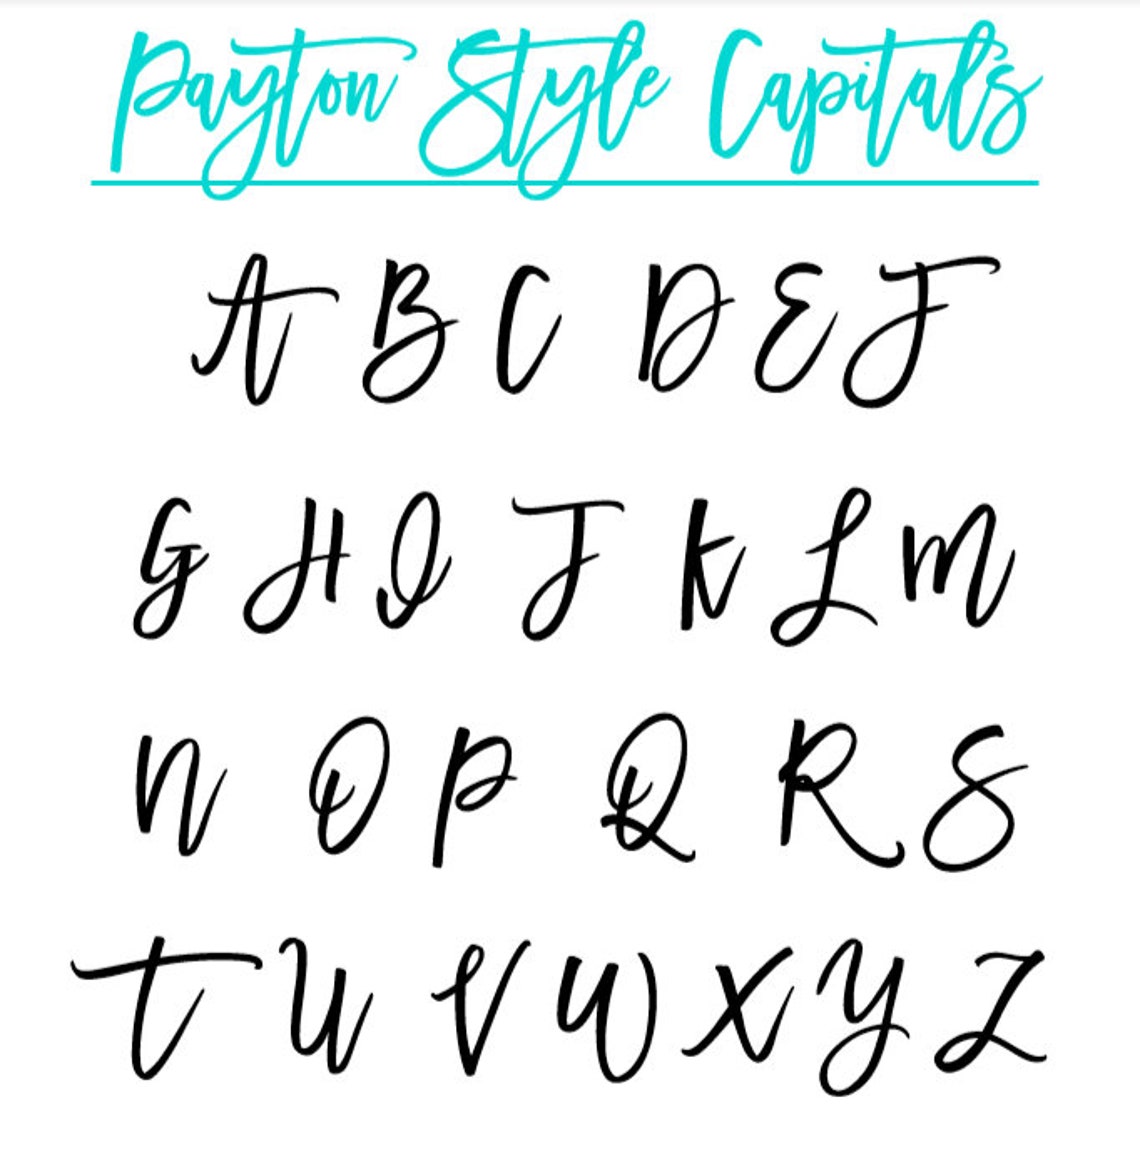 Payton Style Capitals
A B C D E F
G H I J K L M
N O P Q R S
T U V W X Y Z